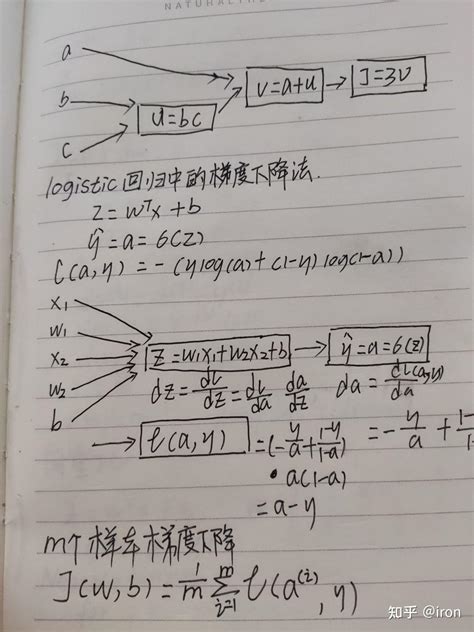 NATURALTHE
a
b
c
u=bc
v=a+u
J=3v
logistic 回归中的梯度下降法.
z=wᵀx+b
ŷ=a=6(z)
L(a,y)=-(ylog(a)+(1-y)log(1-a))
x₁
w₁
x₂
w₂
b
z=w₁x₁+w₂x₂+b
ŷ=a=6(z)
dz=dL/dz=dL/da da/dz
da=dL(a,y)/da
l(a,y)
=(-y/a+(1-y)/(1-a))
=-y/a+
•a(1-a)
=a-y
m个样本梯度下降
J(w,b)=1/m ∑ᵢ₌₁ᵐ l(a⁽ⁱ⁾,y)
知乎 @iron